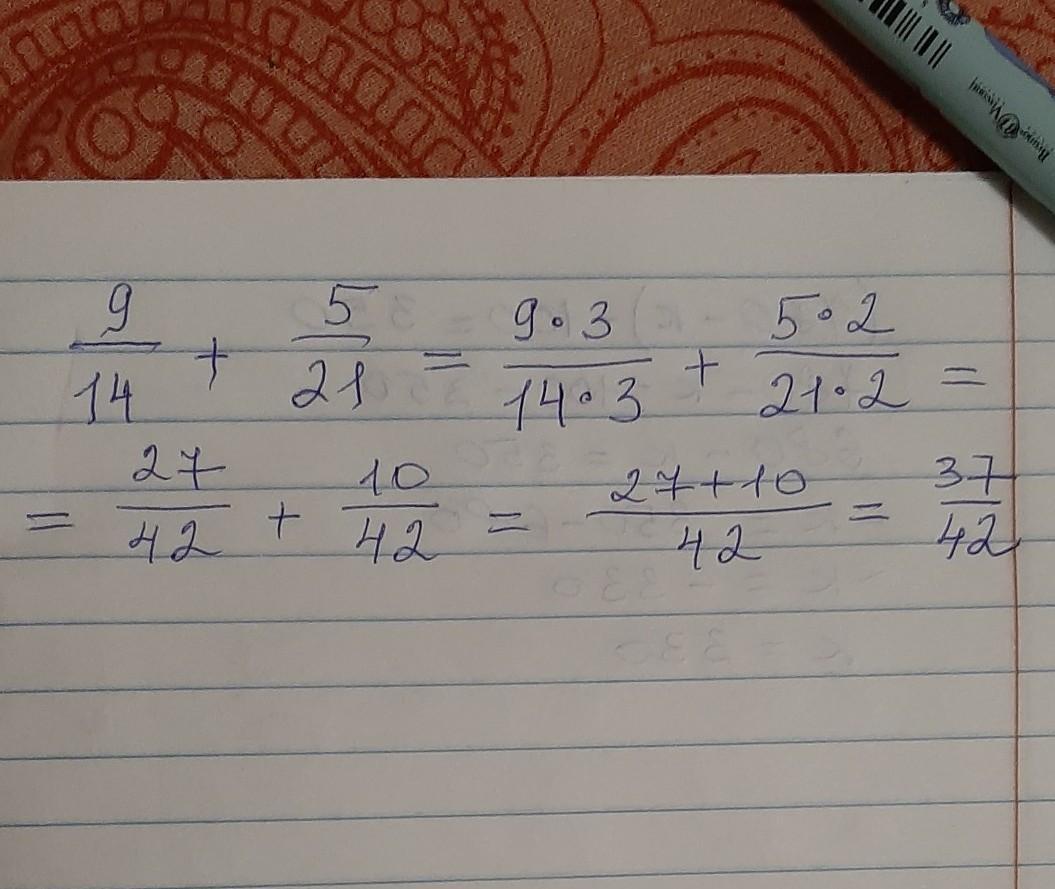 9/14 + 5/21 = 9·3/14·3 + 5·2/21·2 =
= 27/42 + 10/42 = 27+10/42 = 37/42